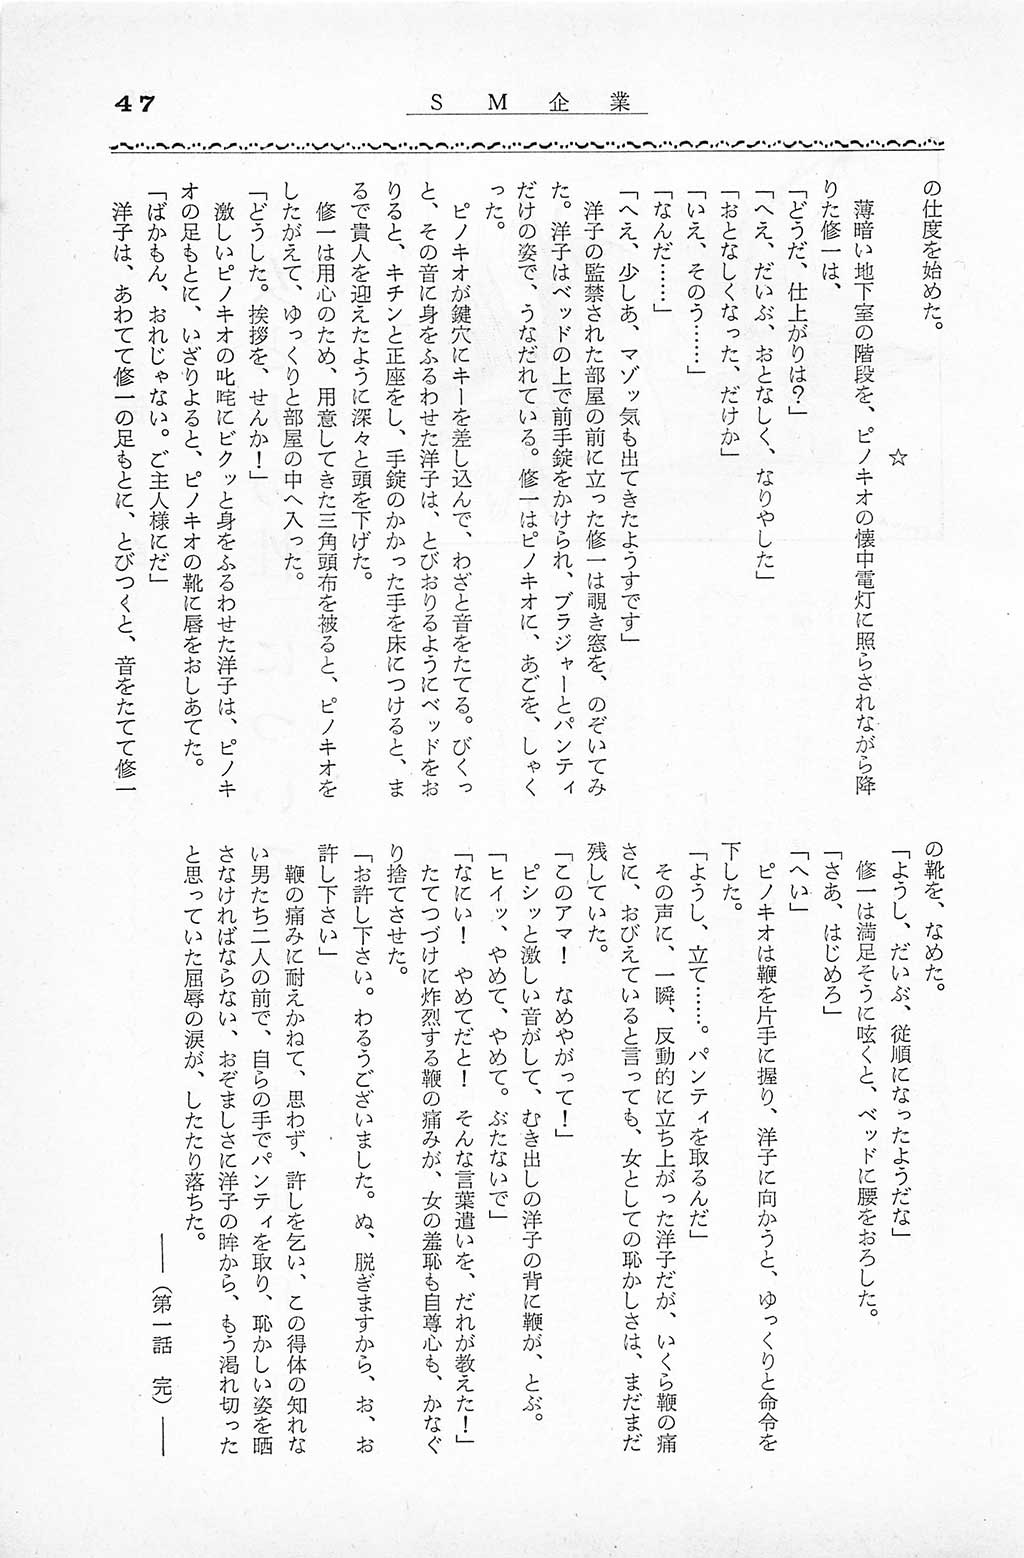 47
SM企業
の仕度を始めた。
☆
薄暗い地下室の階段を、ピノキオの懐中電灯に照らされながら降
りた修一は、
「どうだ、仕上がりは？」
「へえ、だいぶ、おとなしく、なりやした」
「おとなしくなった、だけか」
「いえ、そのう……」
「なんだ……」
「へえ、少しあ、マゾッ気も出てきたようすです」
洋子の監禁された部屋の前に立った修一は覗き窓を、のぞいてみ
た。洋子はベッドの上で前手錠をかけられ、ブラジャーとパンティ
だけの姿で、うなだれている。修一はピノキオに、あごを、しゃく
った。
ピノキオが鍵穴にキーを差し込んで、わざと音をたてる。びくっ
と、その音に身をふるわせた洋子は、とびおりるようにベッドをお
りると、キチンと正座をし、手錠のかかった手を床につけると、ま
るで貴人を迎えたように深々と頭を下げた。
修一は用心のため、用意してきた三角頭布を被ると、ピノキオを
したがえて、ゆっくりと部屋の中へ入った。
「どうした。挨拶を、せんか！」
激しいピノキオの叱咤にビクッと身をふるわせた洋子は、ピノキ
オの足もとに、いざりよると、ピノキオの靴に唇をおしあてた。
「ばかもん、おれじゃない。ご主人様にだ」
洋子は、あわてて修一の足もとに、とびつくと、音をたてて修一
の靴を、なめた。
「ようし、だいぶ、従順になったようだな」
修一は満足そうに呟くと、ベッドに腰をおろした。
「さあ、はじめろ」
「へい」
ピノキオは鞭を片手に握り、洋子に向かうと、ゆっくりと命令を
下した。
「ようし、立て……。パンティを取るんだ」
その声に、一瞬、反動的に立ち上がった洋子だが、いくら鞭の痛
さに、おびえていると言っても、女としての恥かしさは、まだまだ
残していた。
「このアマ！　なめやがって！」
ピシッと激しい音がして、むき出しの洋子の背に鞭が、とぶ。
「ヒイッ、やめて、やめて。ぶたないで」
「なにい！　やめてだと！　そんな言葉遣いを、だれが教えた！」
たてつづけに炸烈する鞭の痛みが、女の羞恥も自尊心も、かなぐ
り捨てさせた。
「お許し下さい。わるうございました。ぬ、脱ぎますから、お、お
許し下さい」
鞭の痛みに耐えかねて、思わず、許しを乞い、この得体の知れな
い男たち二人の前で、自らの手でパンティを取り、恥かしい姿を晒
さなければならない、おぞましさに洋子の眸から、もう渇れ切った
と思っていた屈辱の涙が、したたり落ちた。
――（第一話　完）――